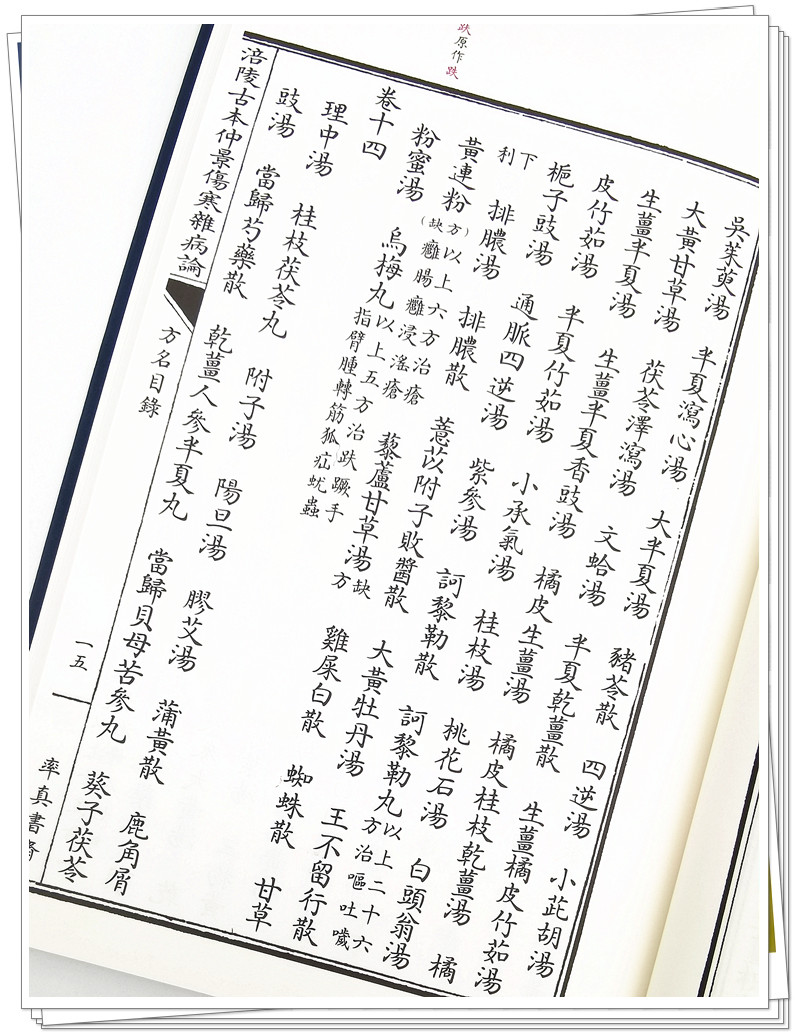 趺原作跌
吳茱萸湯 半夏瀉心湯 大半夏湯 豬苓散 四逆湯 小茈胡湯
大黃甘草湯 茯苓澤瀉湯 文蛤湯 半夏乾薑散 生薑橘皮竹茹湯
生薑半夏湯 生薑半夏香豉湯 橘皮生薑湯 橘皮桂枝乾薑湯 橘
皮竹茹湯 半夏竹茹湯 小承氣湯 桂枝湯 桃花石湯 白頭翁湯
梔子豉湯 通脈四逆湯 紫參湯 訶黎勒散 訶黎勒丸 以上二十六方治嘔吐噦
下利 排膿湯 排膿散 薏苡附子敗醬散 大黃牡丹湯 王不留行散
黃連粉 (方缺)以上六方治瘡癰腸癰浸滛瘡 藜蘆甘草湯 缺方 雞屎白散 蜘蛛散 甘草
粉蜜湯 烏梅丸 以上五方治趺蹶手指臂腫轉筋狐疝蚘蟲
卷十四
理中湯 桂枝茯苓丸 附子湯 陽旦湯 膠艾湯 蒲黃散 鹿角屑
豉湯 當歸芍藥散 乾薑人參半夏丸 當歸貝母苦參丸 葵子茯苓
涪陵古本仲景傷寒雜病論 方名目錄 一五 率真書齋